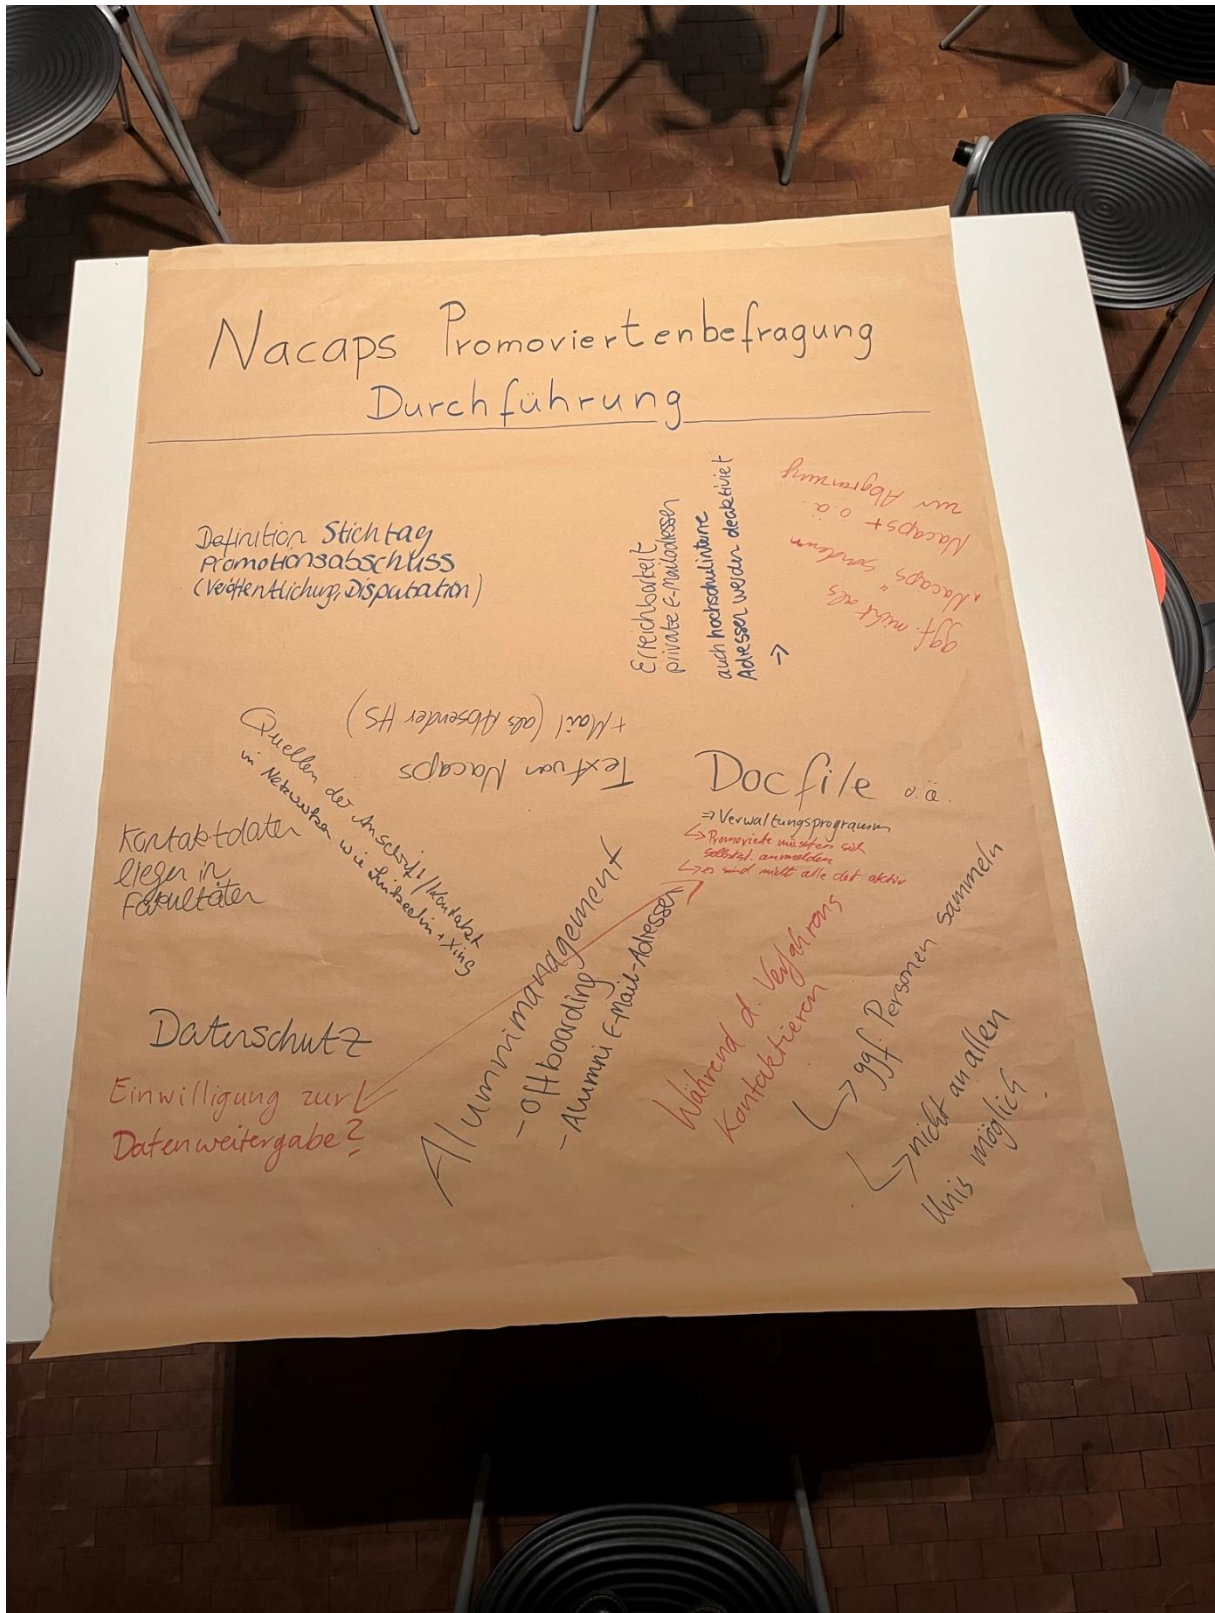 Nacaps Promoviertenbefragung
Durchführung
Definition Stichtag
Promotionsabschluss
(Veröffentlichung, Disputation)
Erreichbarkeit
private E-Mailadressen
auch hochschulinterne
Adressen werden deaktiviert
→
ggf. nicht als
„Nacaps" sondern
Nacaps+ o.ä.
zur Abgrenzung
Text von Nacaps
+ Mail (als Absender HS)
Quellen der Anschrift/Kontakt
in Netzwerken wie Linkedin + Xing
Docfile o.ä.
⇒ Verwaltungsprogramm
↳ Promovierte müssten sich
selbstst. anmelden
↳ es sind nicht alle dort aktiv
Kontaktdaten
liegen in
Fakultäten
Datenschutz
Einwilligung zur
Datenweitergabe?
Alumnimanagement
- Offboarding
- Alumni E-Mail-Adressen
Während d. Verfahrens
kontaktieren
↳ ggf. Personen sammeln
↳ nicht an allen
Unis möglich